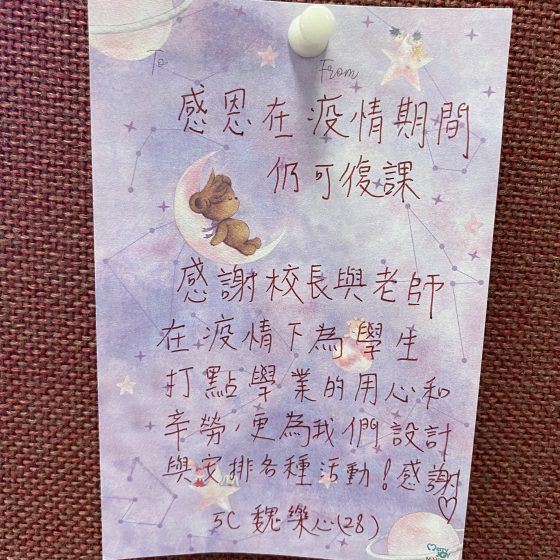 To
From
感恩在疫情期間
仍可復課
感謝校長與老師
在疫情下為學生
打點學業的用心和
辛勞，更為我們設計
與安排各種活動！感謝♡
5C 魏樂心(28)